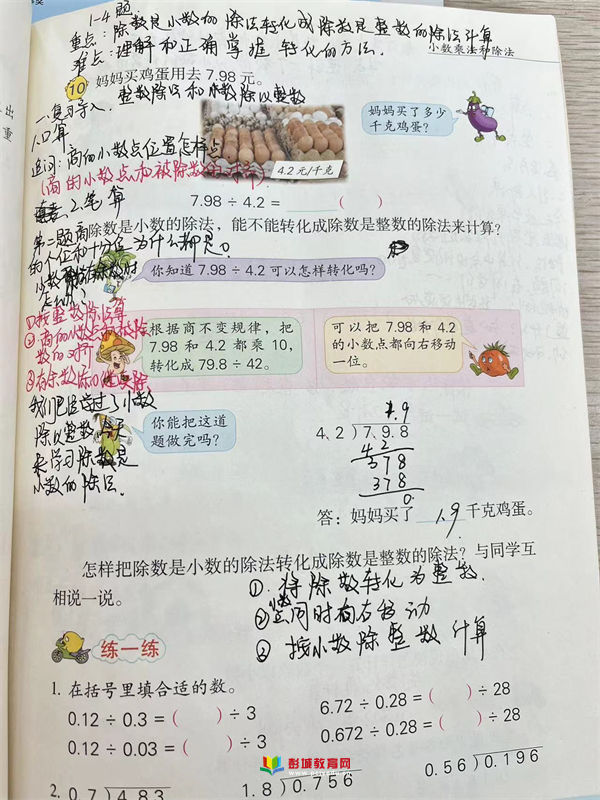 1-4题
重点:除数是小数的除法转化成除数是整数的除法计算
难点:理解和正确掌握转化的方法.
小数乘法和除法
10 妈妈买鸡蛋用去 7.98 元。
一.复习导入. 整数除法和小数除以整数
1.口算
妈妈买了多少
千克鸡蛋?
追问:商的小数点位置怎样点
4.2 元/千克
(商的小数点和被除数的对齐)
7.98 ÷ 4.2 = ( )
2.笔算
除数是小数的除法,能不能转化成除数是整数的除法来计算?
第二题商
的个位和十分位为什么都是0。
你知道 7.98 ÷ 4.2 可以怎样转化吗?
①按整数除法算
②商的小数点和被除
数的对齐
③有余数添0继续除
根据商不变规律,把
7.98 和 4.2 都乘 10,
转化成 79.8 ÷ 42。
可以把 7.98 和 4.2
的小数点都向右移动
一位。
我们已经学过了小数
除以整数 今天
来学习除数是
小数的除法.
你能把这道
题做完吗?
1.9
4.2 ) 7.9.8
42
378
378
0
答:妈妈买了 1.9 千克鸡蛋。
怎样把除数是小数的除法转化成除数是整数的除法?与同学互
相说一说。
①.将除数转化为整数.
同时向右移动
按小数除整数计算
练一练
1. 在括号里填合适的数。
0.12 ÷ 0.3 = ( ) ÷ 3
6.72 ÷ 0.28 = ( ) ÷ 28
0.12 ÷ 0.03 = ( ) ÷ 3
0.672 ÷ 0.28 = ( ) ÷ 28
2. 0.7 ) 4.83
1.8 ) 0.756
0.56 ) 0.196
彭城教育网